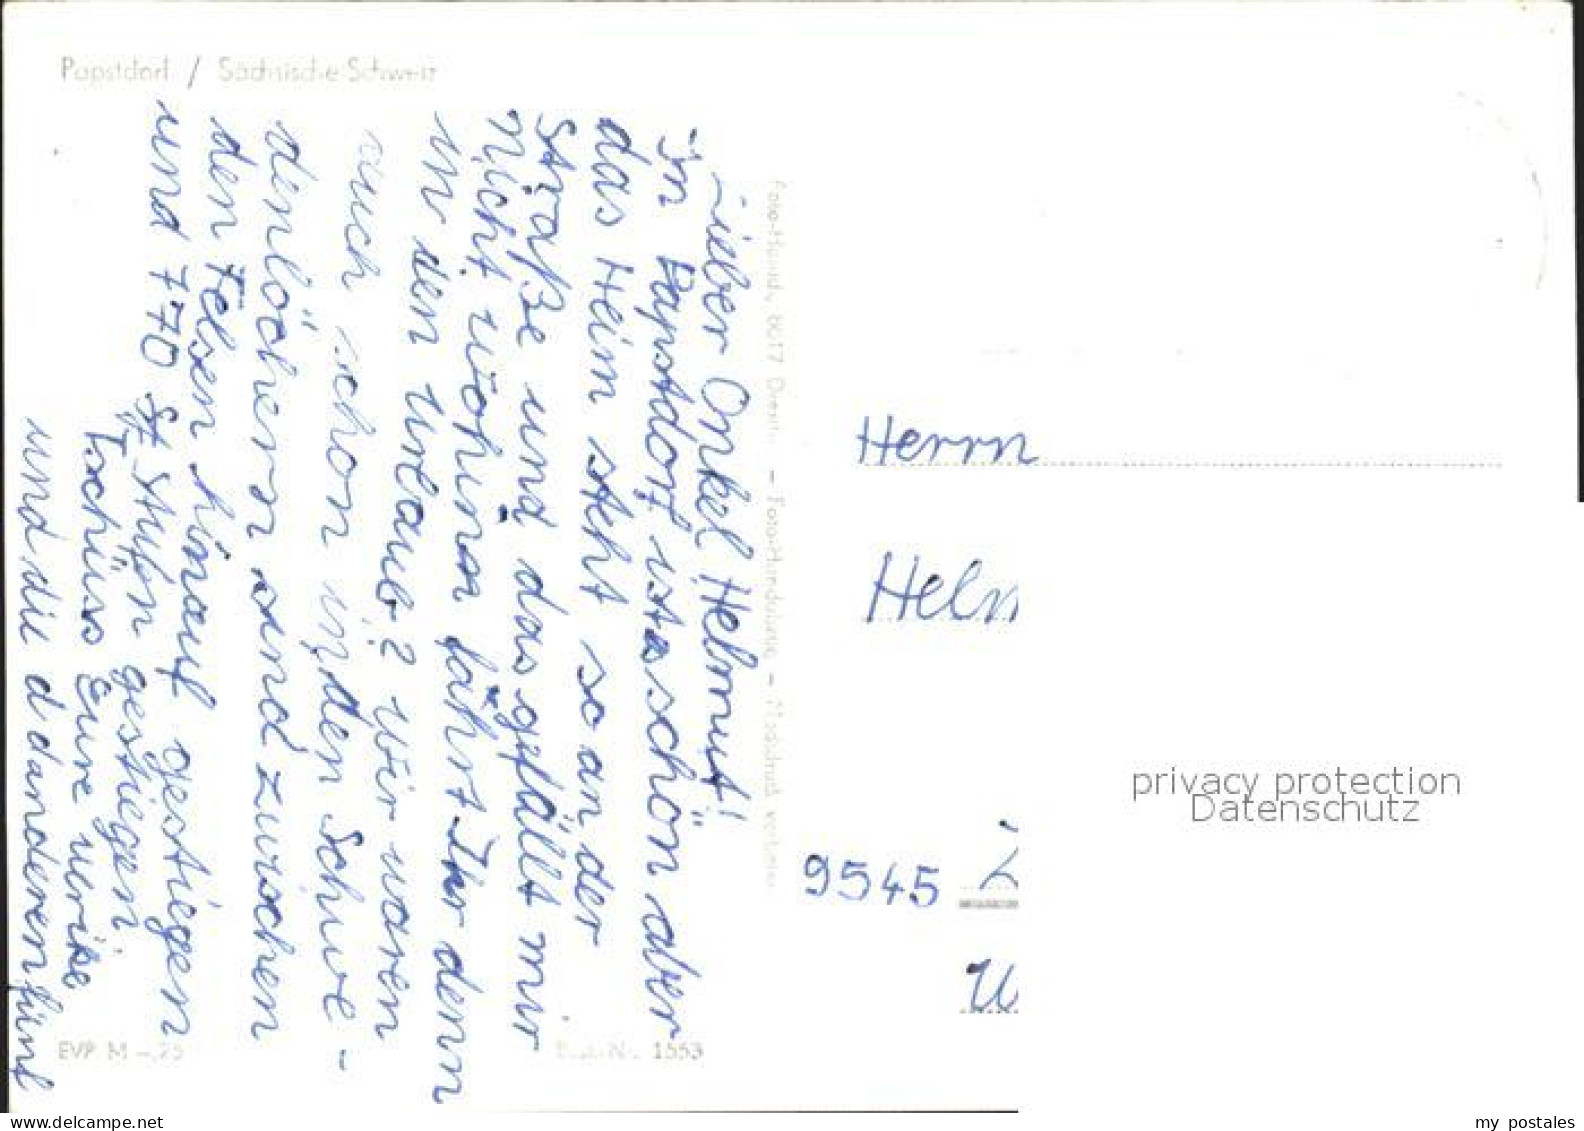 Papstdorf / Sächsische Schweiz
Lieber Onkel Helmut!
In Papstdorf ist es schön aber
das Heim steht so an der
Straße und das gefällt mir
nicht. Wohin fährt Ihr denn
in den Urlaub? Wir waren
auch schon in den Schwe-
denlöchern und zwischen
den Felsen hinauf gestiegen
und 770 St Stufen gestiegen
Tschüss Eure
und die d anderen fünf
8017 Dresden
EVP M -,25
1553
Herrn
Helm
9545
privacy protection
Datenschutz
www.delcampe.net
my postales